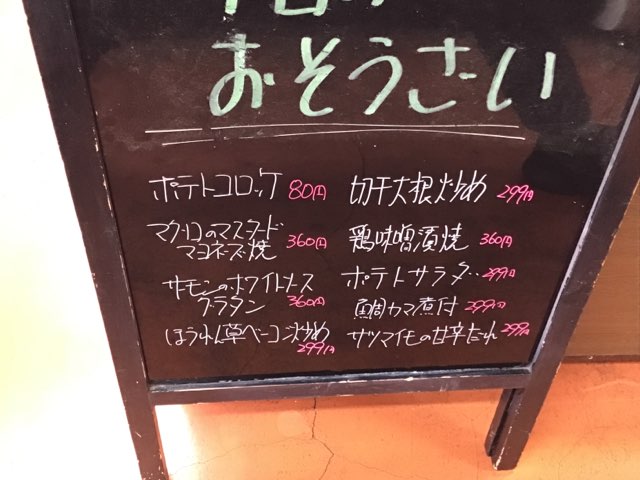 おそうざい
ポテトコロッケ 80円
マグロのマスタード
マヨネーズ焼 360円
サーモンのホワイトソース
グラタン 360円
ほうれん草ベーコン炒め
299円
切干大根炒め 299円
鶏味噌漬焼 360円
ポテトサラダ 299円
鯛カマ煮付 299円
サツマイモの甘辛だれ 299円